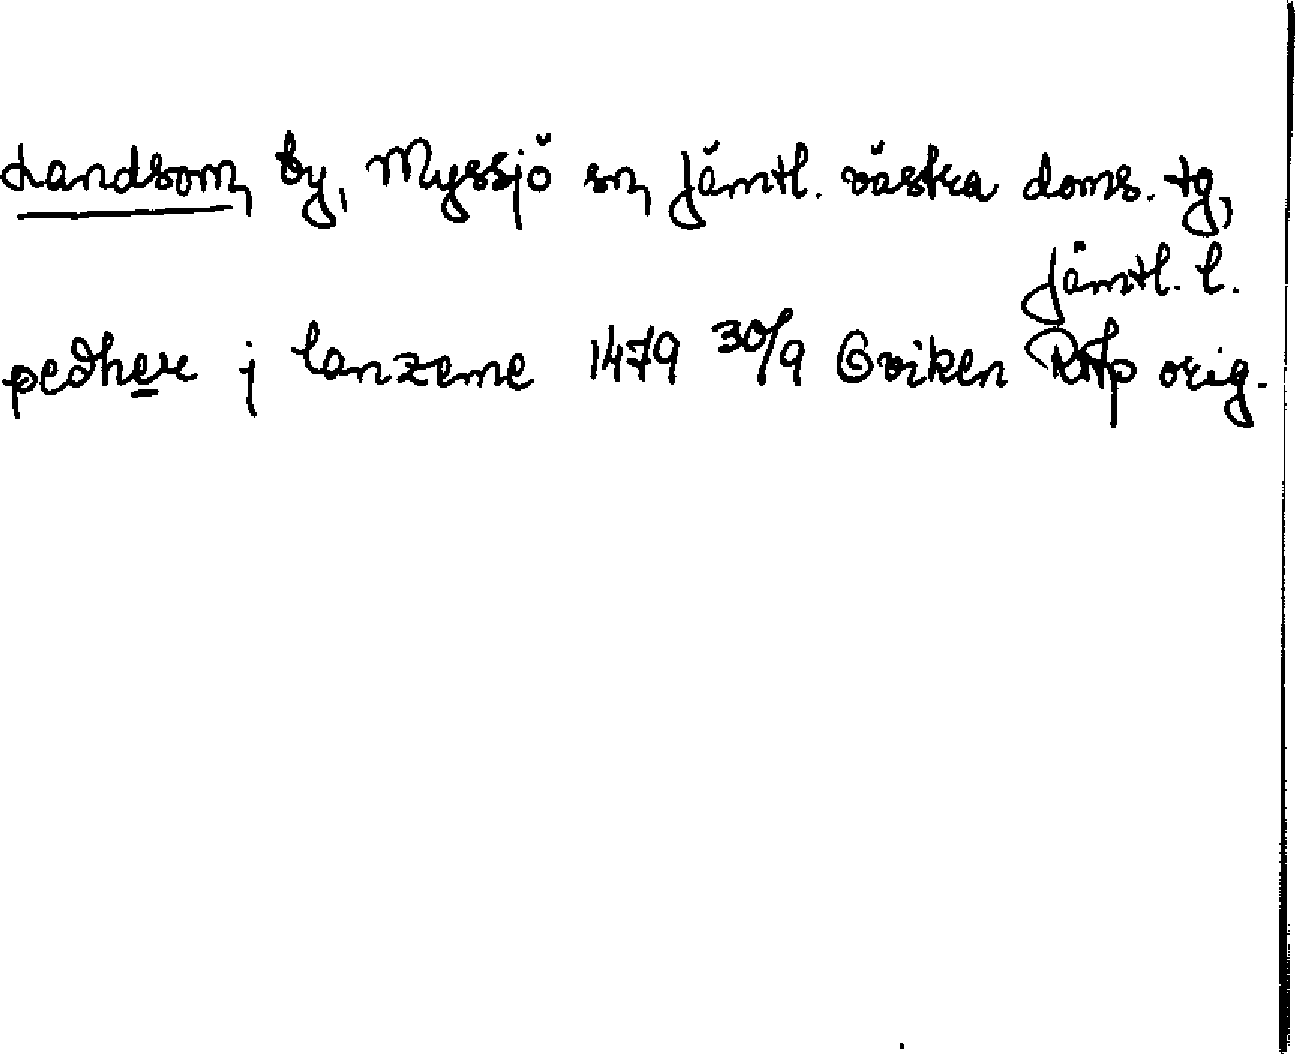 Landsom, by, Myssjö sn, Jämtl. västra doms. tg,
Jämtl. l.
pedhere j lanzeme 1479 30/9 Oviken RAp orig.